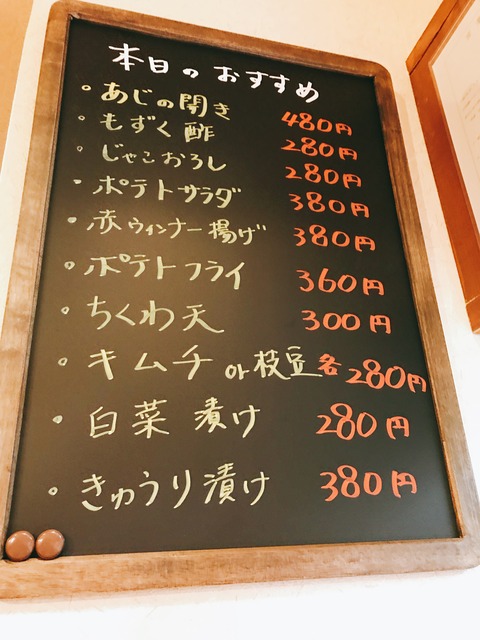 本日のおすすめ
。あじの開き 480円
。もずく酢 280円
。じゃこおろし 280円
。ポテトサラダ 380円
。赤ウィンナー揚げ 380円
。ポテトフライ 360円
。ちくわ天 300円
。キムチ or 枝豆 各280円
。白菜漬け 280円
。きゅうり漬け 380円